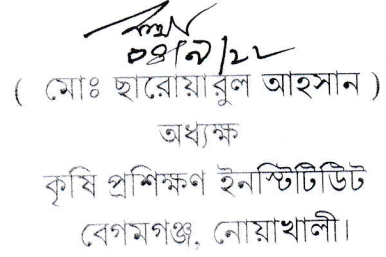 ০৪/৭/২২
( মোঃ ছারোয়ারুল আহসান )
অধ্যক্ষ
কৃষি প্রশিক্ষণ ইনস্টিটিউট
বেগমগঞ্জ, নোয়াখালী।